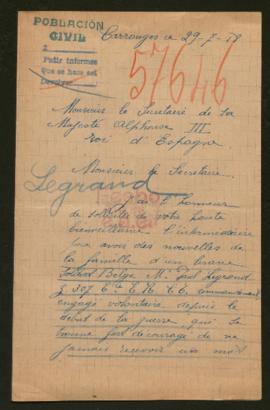 POBLACIÓN
CIVIL
2
Pedir informes
que se hace así.
Carrouges ce 29-7-18
57646
Monsieur le Secrétaire de Sa
Majesté Alphonse III
roi d'Espagne
Monsieur le Secrétaire
Legrand
J'ai l'honneur
de solliciter de votre haute
bienveillance l'intermédiaire
pour avoir des nouvelles de
la famille d'un brave
soldat Belge Mr Paul Legrand
Z 307 Cie E. R. C. E.
engagé volontaire depuis le
début de la guerre qui se
trouve fort découragé de ne
jamais recevoir un mot